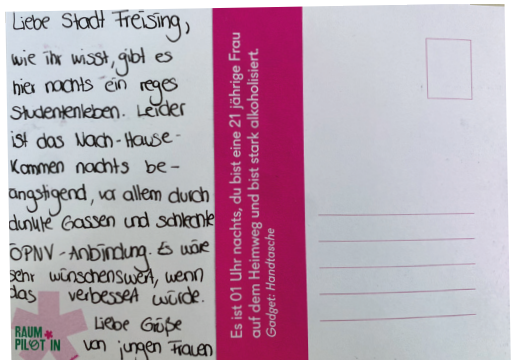 Liebe Stadt Freising,
wie ihr wisst, gibt es
hier nachts ein reges
Studentenleben. Leider
ist das Nach-Hause-
Kommen nachts be-
angstigend, vor allem durch
dunkle Gassen und schlechte
ÖPNV-Anbindung. Es wäre
sehr wünschenswert, wenn
das verbessert würde.
Liebe Grüße
von jungen Frauen
RAUM
PILOT IN
Es ist 01 Uhr nachts, du bist eine 21 jährige Frau
auf dem Heimweg und bist stark alkoholisiert.
Gadget: Handtasche